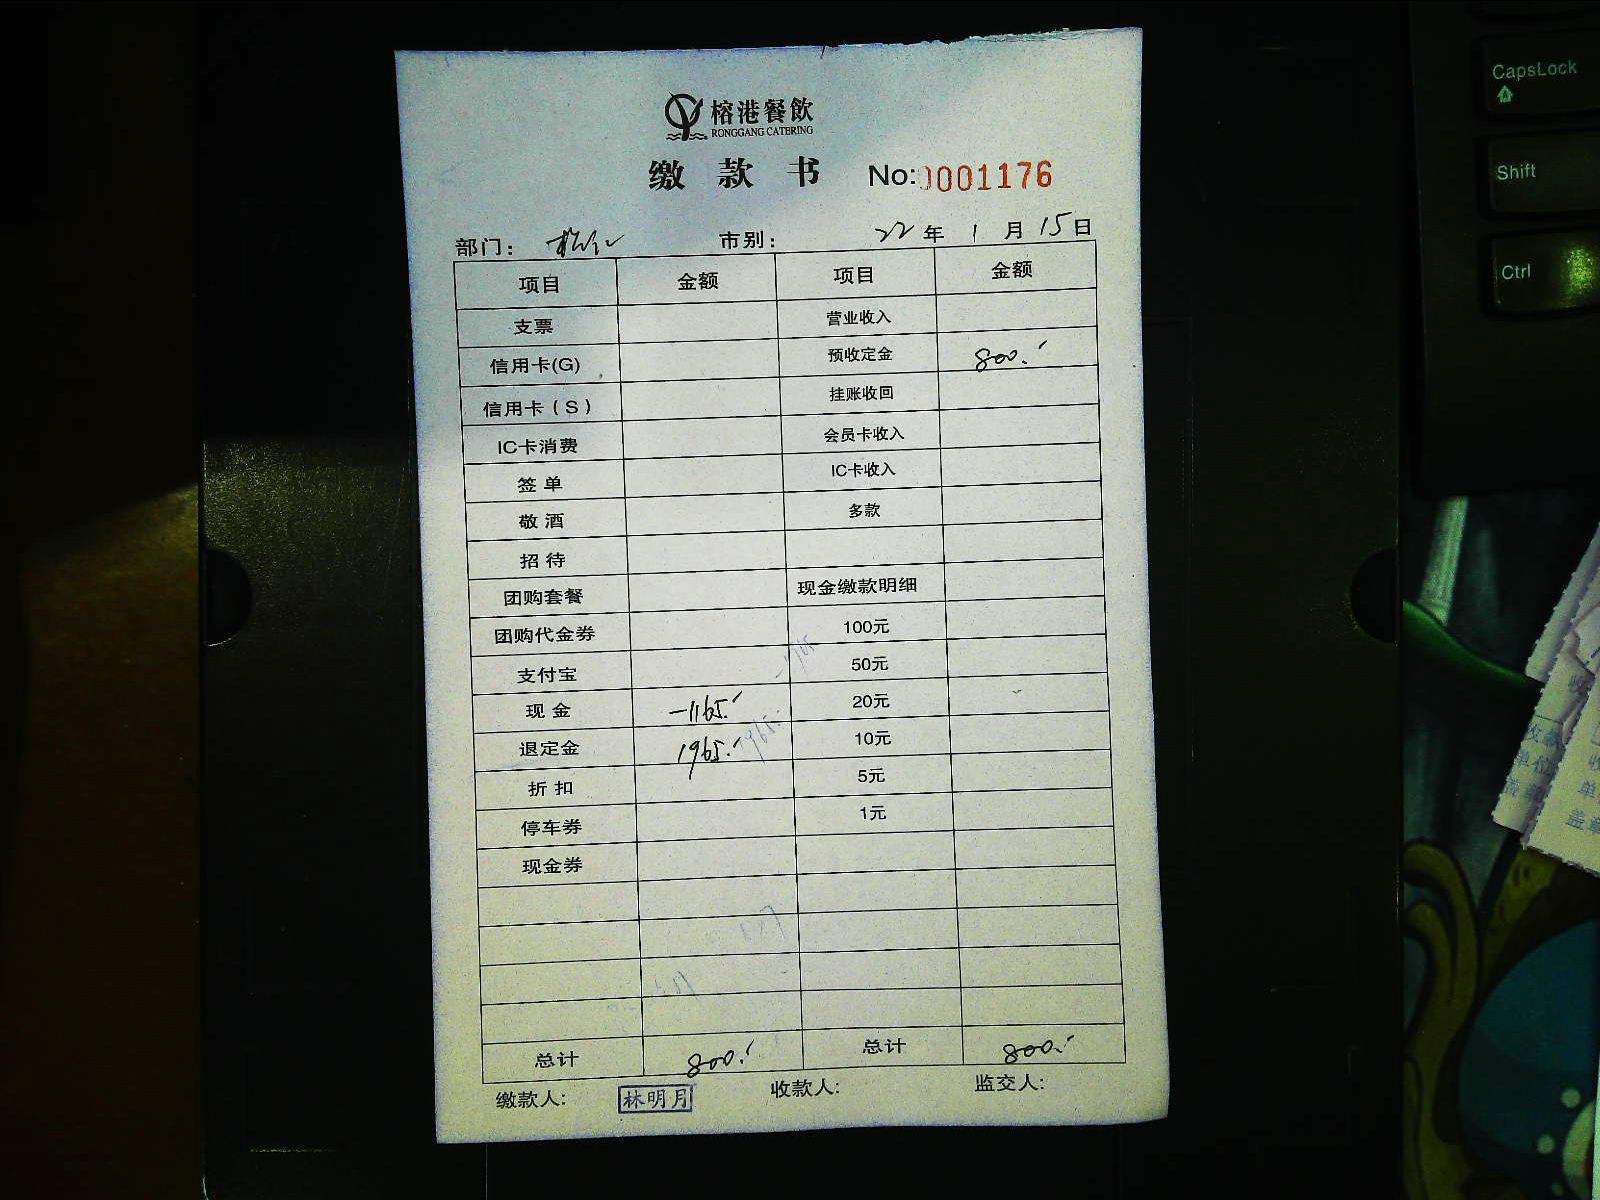 榕港餐飲
RONGGANG CATERING
缴款书 No:0001176
部门： 市别： 22年1月15日
项目 金额 项目 金额
支票 营业收入
信用卡(G) 预收定金 800.-
信用卡（S） 挂账收回
IC卡消费 会员卡收入
签单 IC卡收入
敬酒 多款
招待
团购套餐 现金缴款明细
团购代金券 100元
支付宝 50元
现金 -1165.- 20元
退定金 1965.- 10元
折扣 5元
停车券 1元
现金券
总计 800.- 总计 800.-
缴款人: 林明月 收款人: 监交人:
CapsLock
Shift
Ctrl